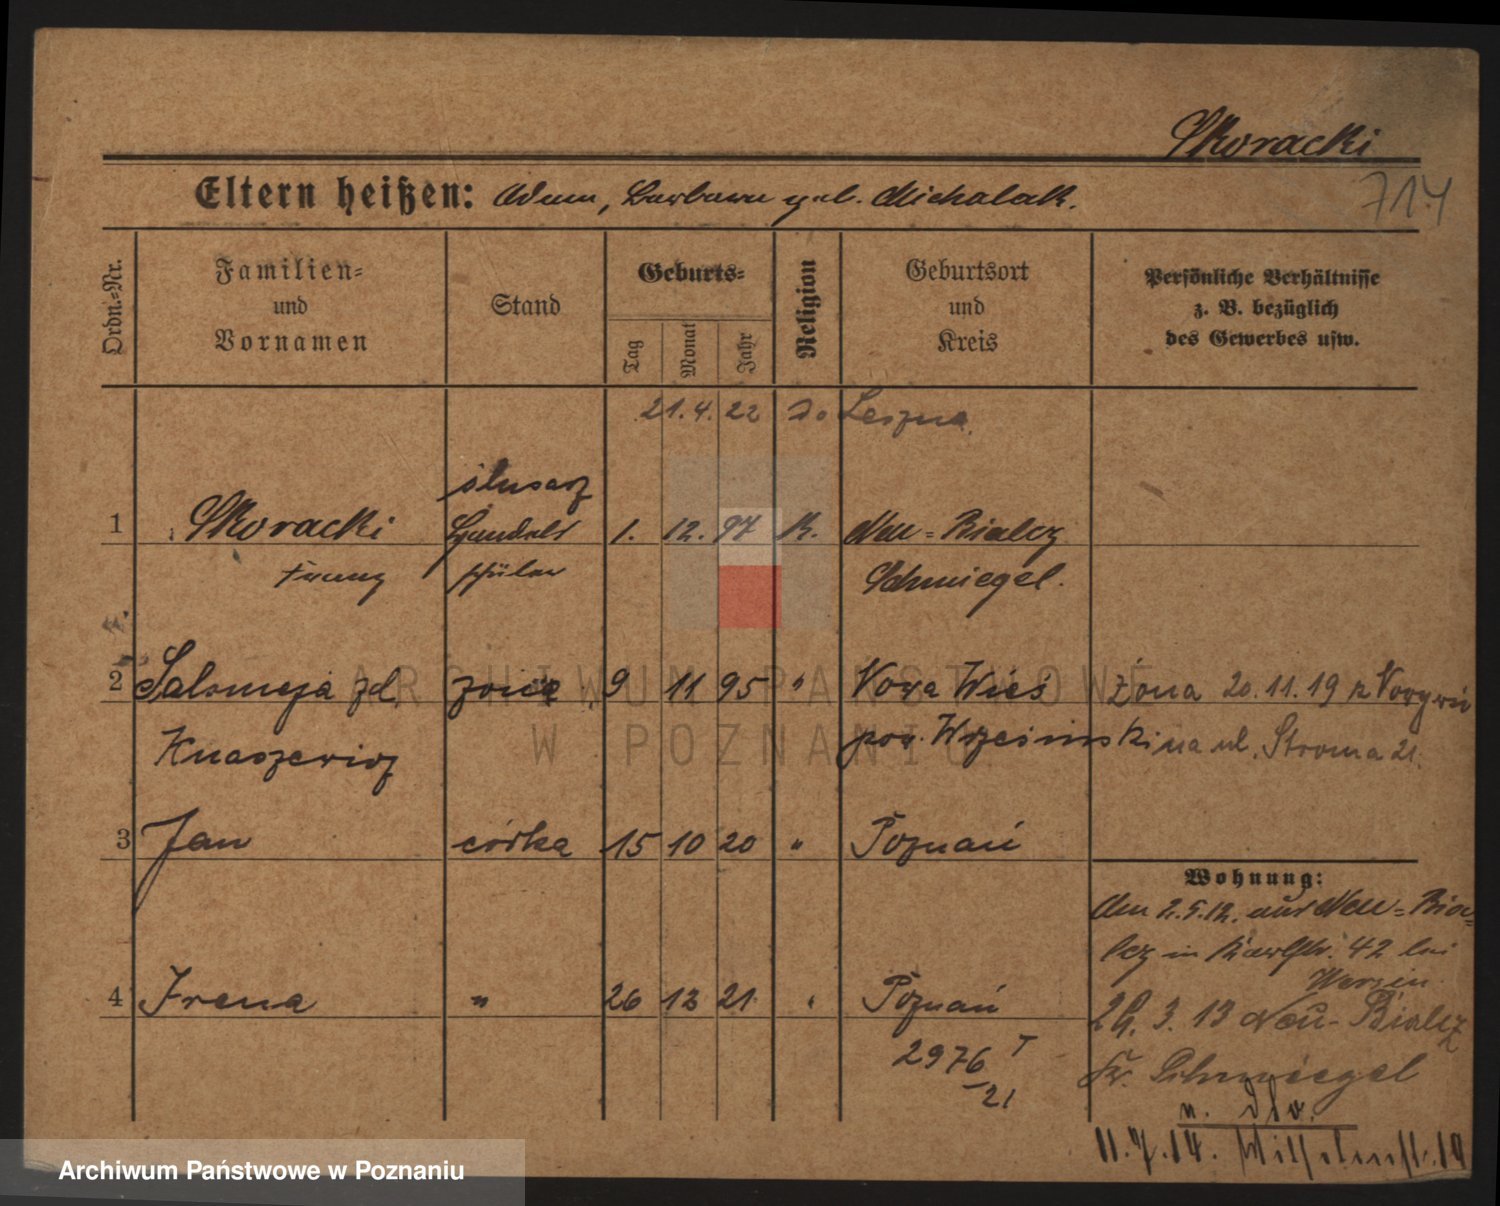 Skoracki
Eltern heißen: Adam, Barbara geb. Michalak.
714
Ordn.=Nr.
Familien=
und
Vornamen
Stand
Geburts=
Tag
Monat
Jahr
Religion
Geburtsort
und
Kreis
Persönliche Verhältnisse
z. B. bezüglich
des Gewerbes usw.
21.4. 22 do Leszna.
ślusarz
1 Skoracki Handels 1. 12. 97 K. Neu=Bialcz
Franz schüler Schmiegel.
2 Salomeja zd żona 9 11 95 " Nowa Wieś Żona 20.11.19 z
Knaszewicz pow. Wrzesiński na ul. Stroma 21.
3 Jan córka 15 10 20 " Poznań
Wohnung:
Am 2.5.12. aus Neu=Bia=
lcz in 42 bei
4 Irena " 26 12 21 " Poznań
29. 3. 13 Neu-Bialcz
2976 T
21
Kr. Schmiegel
n. dso.
11.7.14. Wilhelmstr. 19
ARCHIWUM PAŃSTWOWE
W POZNANIU
Archiwum Państwowe w Poznaniu